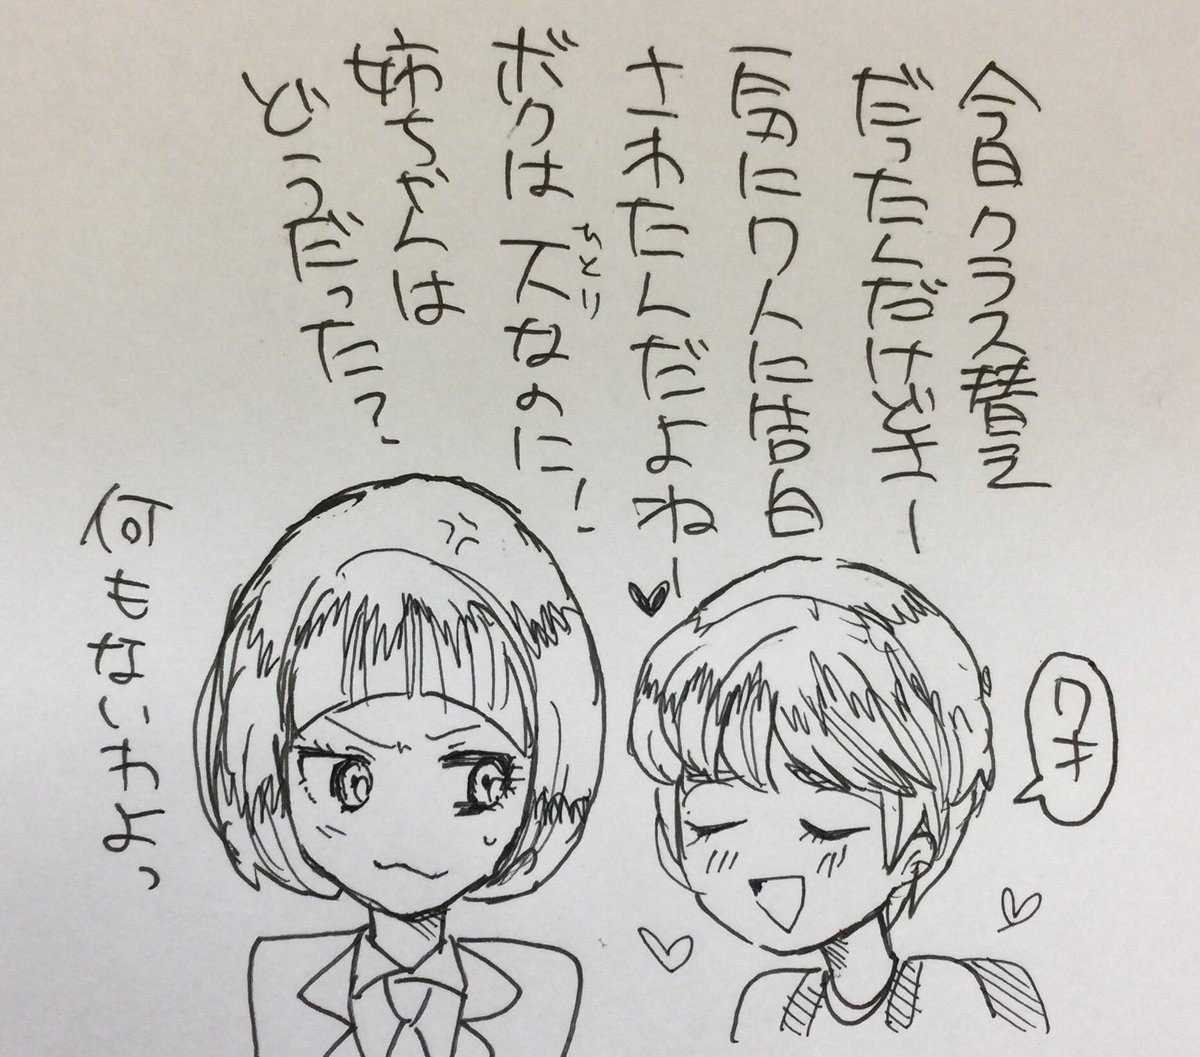 今日クラス替え
だったんだけどさー
一気に7人に告白
されたんだよねー
ボクは一人なのに!
ひとり
姉ちゃんは
どうだった?
何もないわよっ